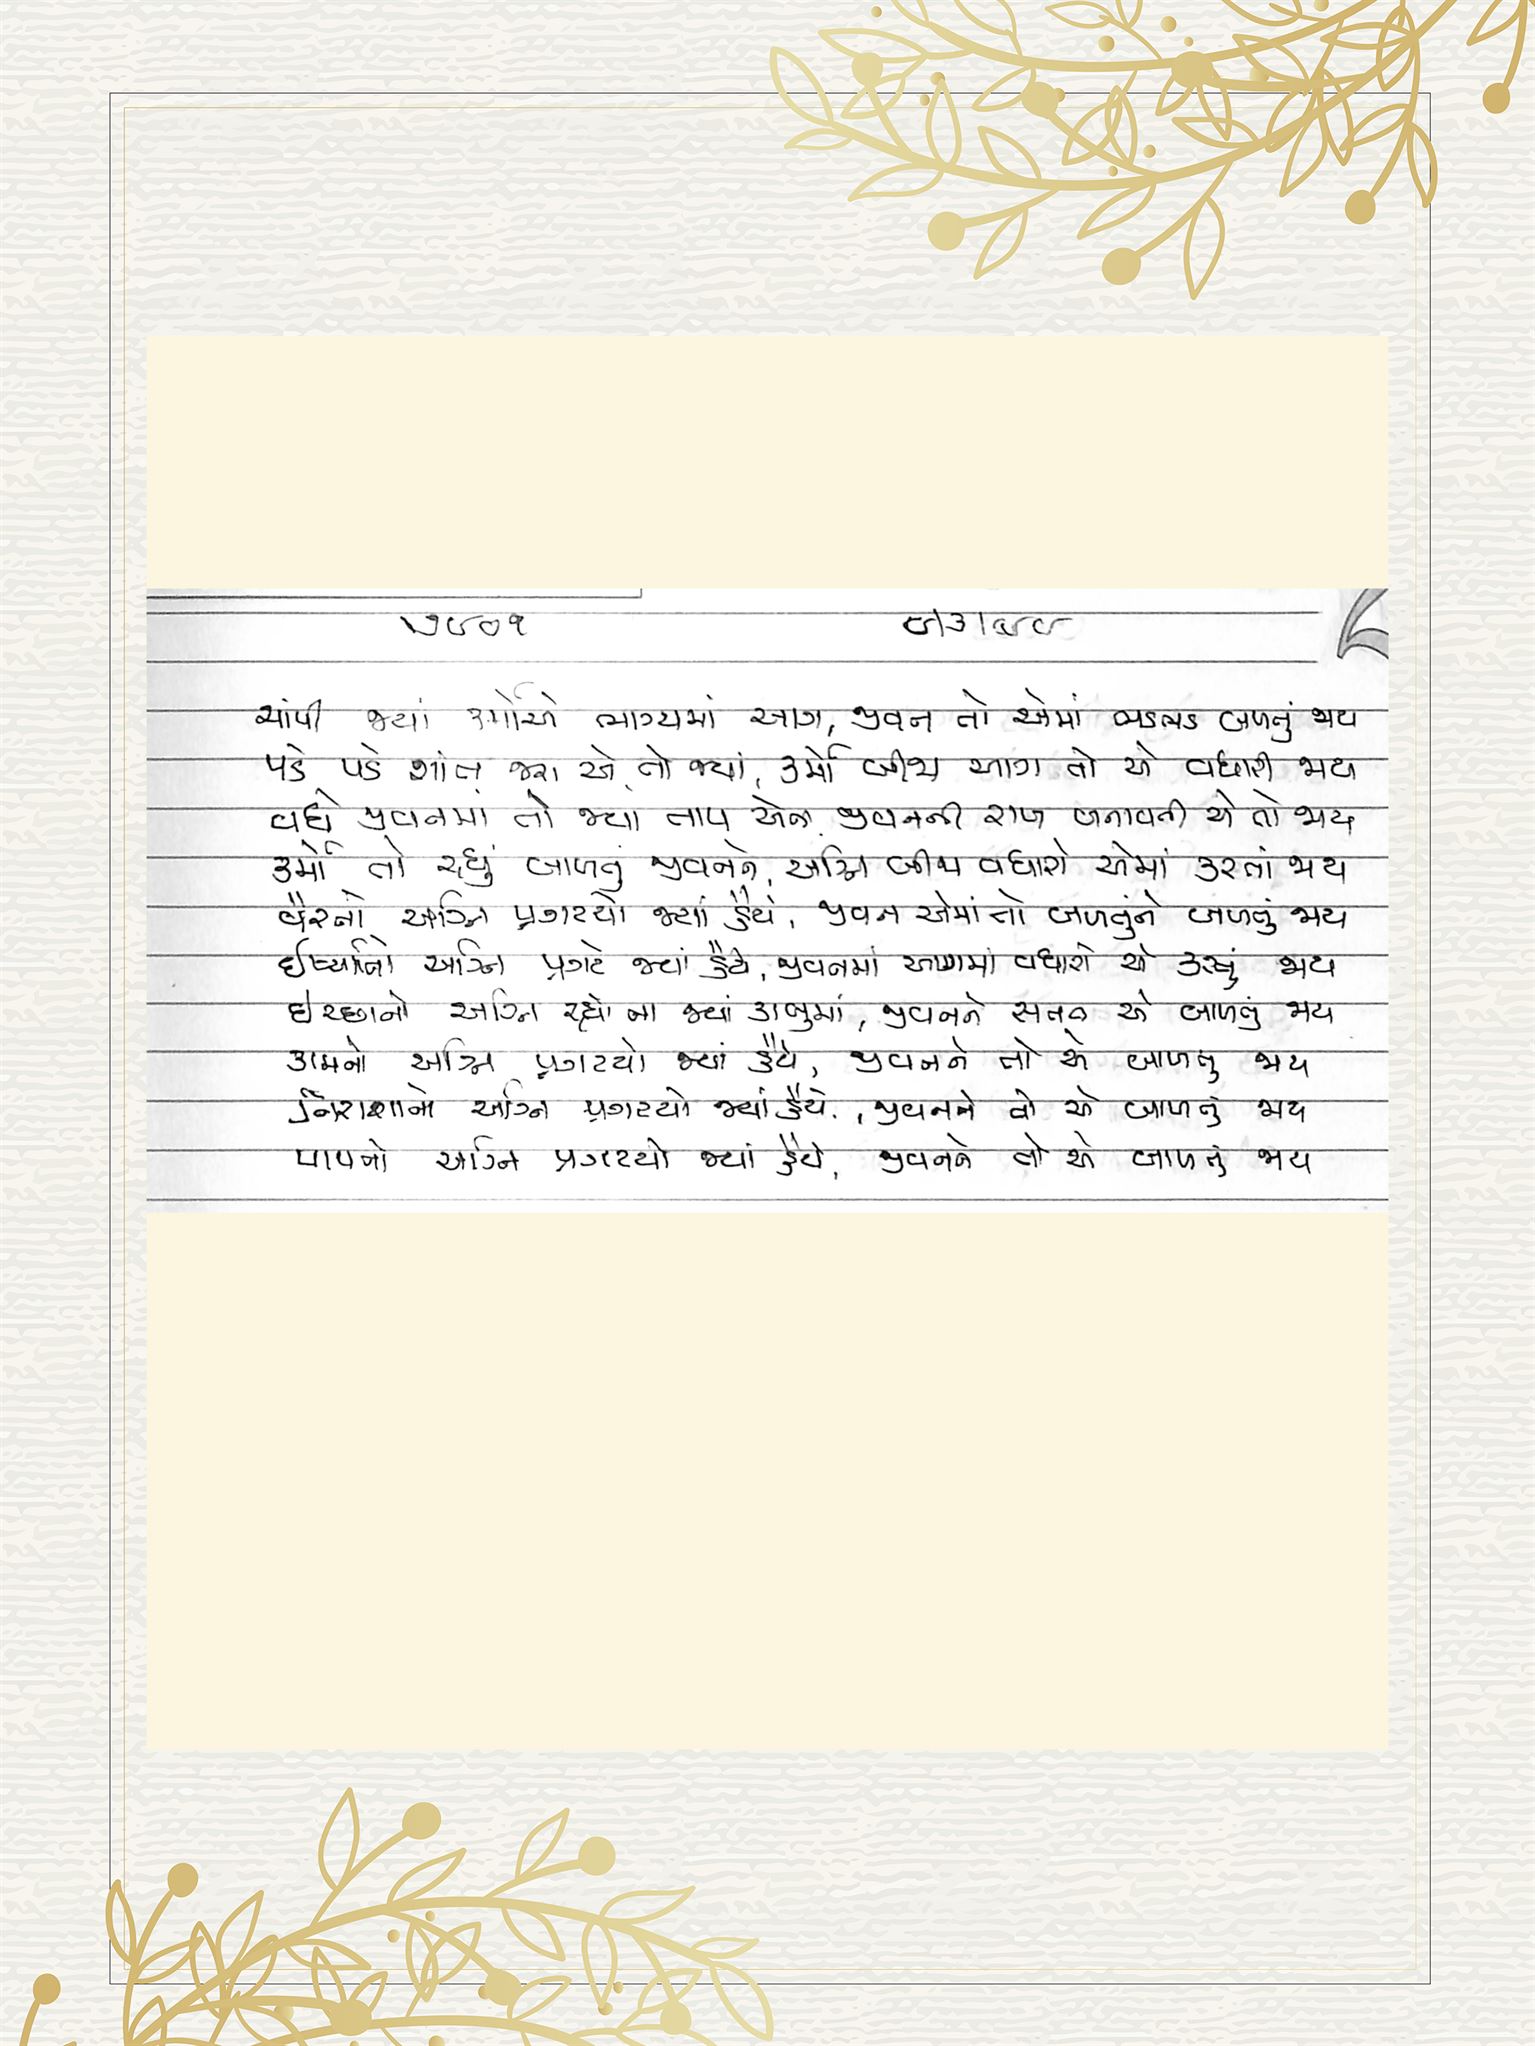 ૭૯૦૧ ૯/૩/૯૯
ચાંપી જ્યાં કર્મોએ ભાગ્યમાં આગ, જીવન તો એમાં ભડભડ બળતું જાય
પડે પડે શાંત જરા એ તો જ્યાં, કર્મો બીજી આગ તો એ વધારી જાય
વધે જીવનમાં તો જ્યાં તાપ એના, જીવનની રાખ બનાવતી એ તો જાય
કર્મો તો રહ્યું બાળતું જીવનને, અગ્નિ બીજા વધારો એમાં કરતાં જાય
વૈરનો અગ્નિ પ્રગટયો જ્યાં હૈયે, જીવન એમાં તો બળતુંને બળતું જાય
ઈર્ષ્યાનો અગ્નિ પ્રગટે જ્યાં હૈયે, જીવનમાં આગમાં વધારો એ કરતું જાય
ઇચ્છાનો અગ્નિ રહ્યો ના જ્યાં કાબુમાં, જીવનને સતત એ બાળતું જાય
કામનો અગ્નિ પ્રગટયો જ્યાં હૈયે, જીવનને તો એ બાળતુ જાય
નિરાશાનો અગ્નિ પ્રગટયો જ્યાં હૈયે, જીવનને તો એ બાળતું જાય
પાપનો અગ્નિ પ્રગટયો જ્યાં હૈયે, જીવનને તો એ બાળતું જાય